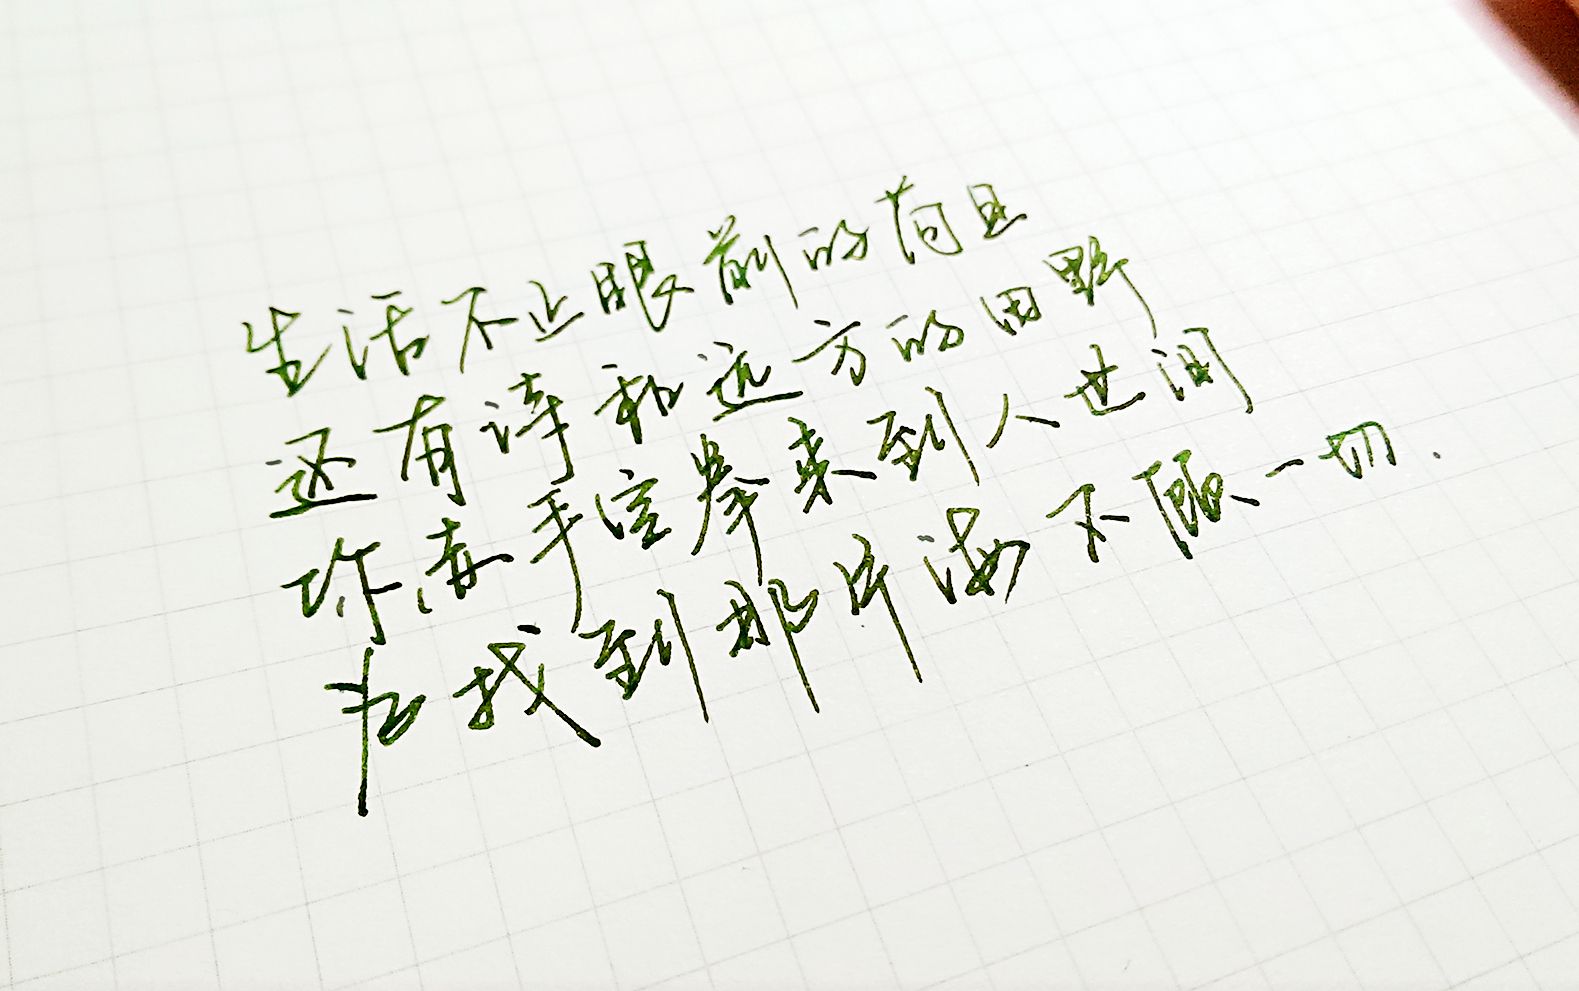 生活不止眼前的苟且
还有诗和远方的田野
你赤手空拳来到人世间
为找到那片海不顾一切.